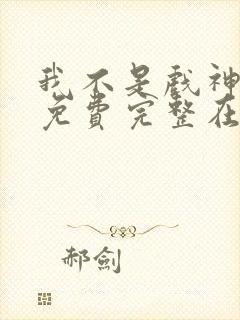 我不是戲神
免費完整在
郝劍